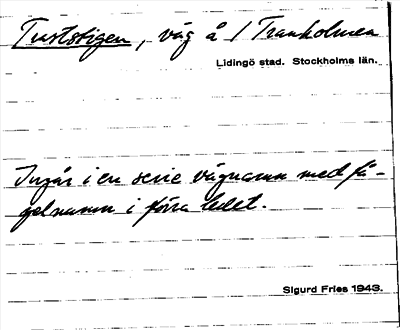 Traststigen, väg å / Tranholmen
Lidingö stad. Stockholms län.
Ingår i en serie vägnamn med få-
gelnamn i förra ledet.
Sigurd Fries 1943.